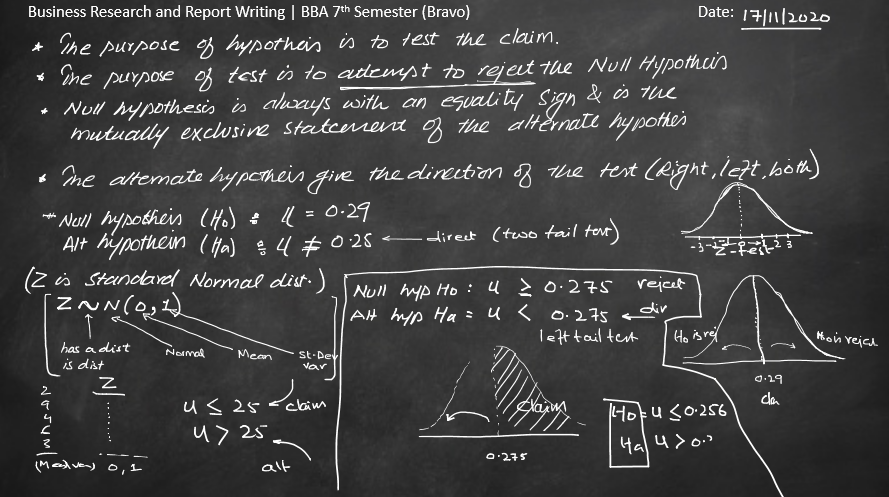 Business Research and Report Writing | BBA 7th Semester (Bravo)
Date: 17/11/2020
* The purpose of hypotheis is to test the claim.
* The purpose of test is to attempt to reject the Null Hypotheis
* Null hypothesis is always with an equality Sign & is the
mutually exclusive statement of the alternate hypotheis
* The alternate hypotheis give the direction of the test (Right, left, both)
* Null hypotheis (Ho) : u = 0.29
Alt hypotheis (Ha) : u ≠ 0.25 ← direct (two tail test)
-3 -2 -1 0 1 2 3
Z-test
(Z is Standard Normal dist.)
Z ~ N(0,1)
has a dist
is dist
Normal
Mean
St.Dev
var
Z
2
9
4
3
0, 1
u ≤ 25 ← claim
u > 25
alt
Null hyp Ho : u ≥ 0.275 reject
Alt hyp Ha = u < 0.275 ← dir
left tail test
claim
0.275
Ho is rej
Ho is reject
0.29
cla
Ho = u ≤ 0.256
Ha u > 0.